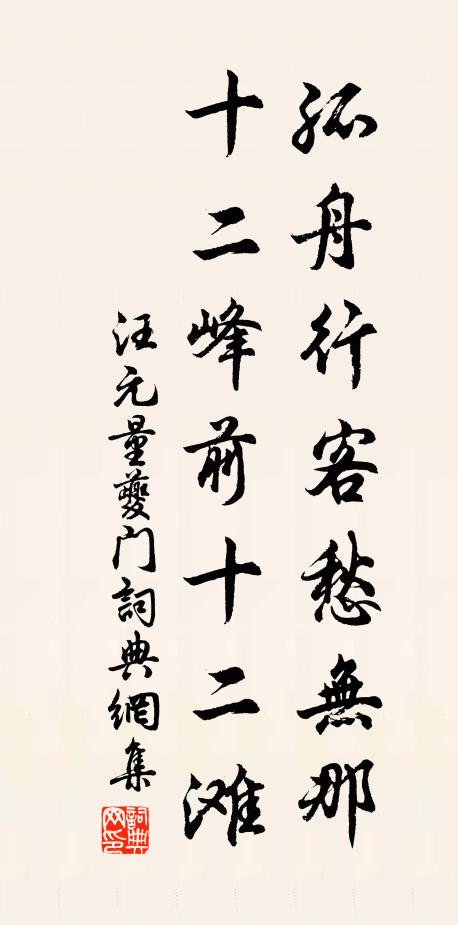 孤舟行客愁無那
十二峰前十二滩
汪元量夔门詞典網集
詞典网印